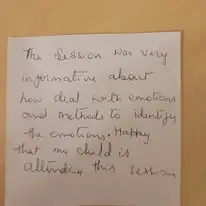 The Session was very
informative about
how deal with emotions
and methods to identify
the emotions. Happy
that my child is
attending this session